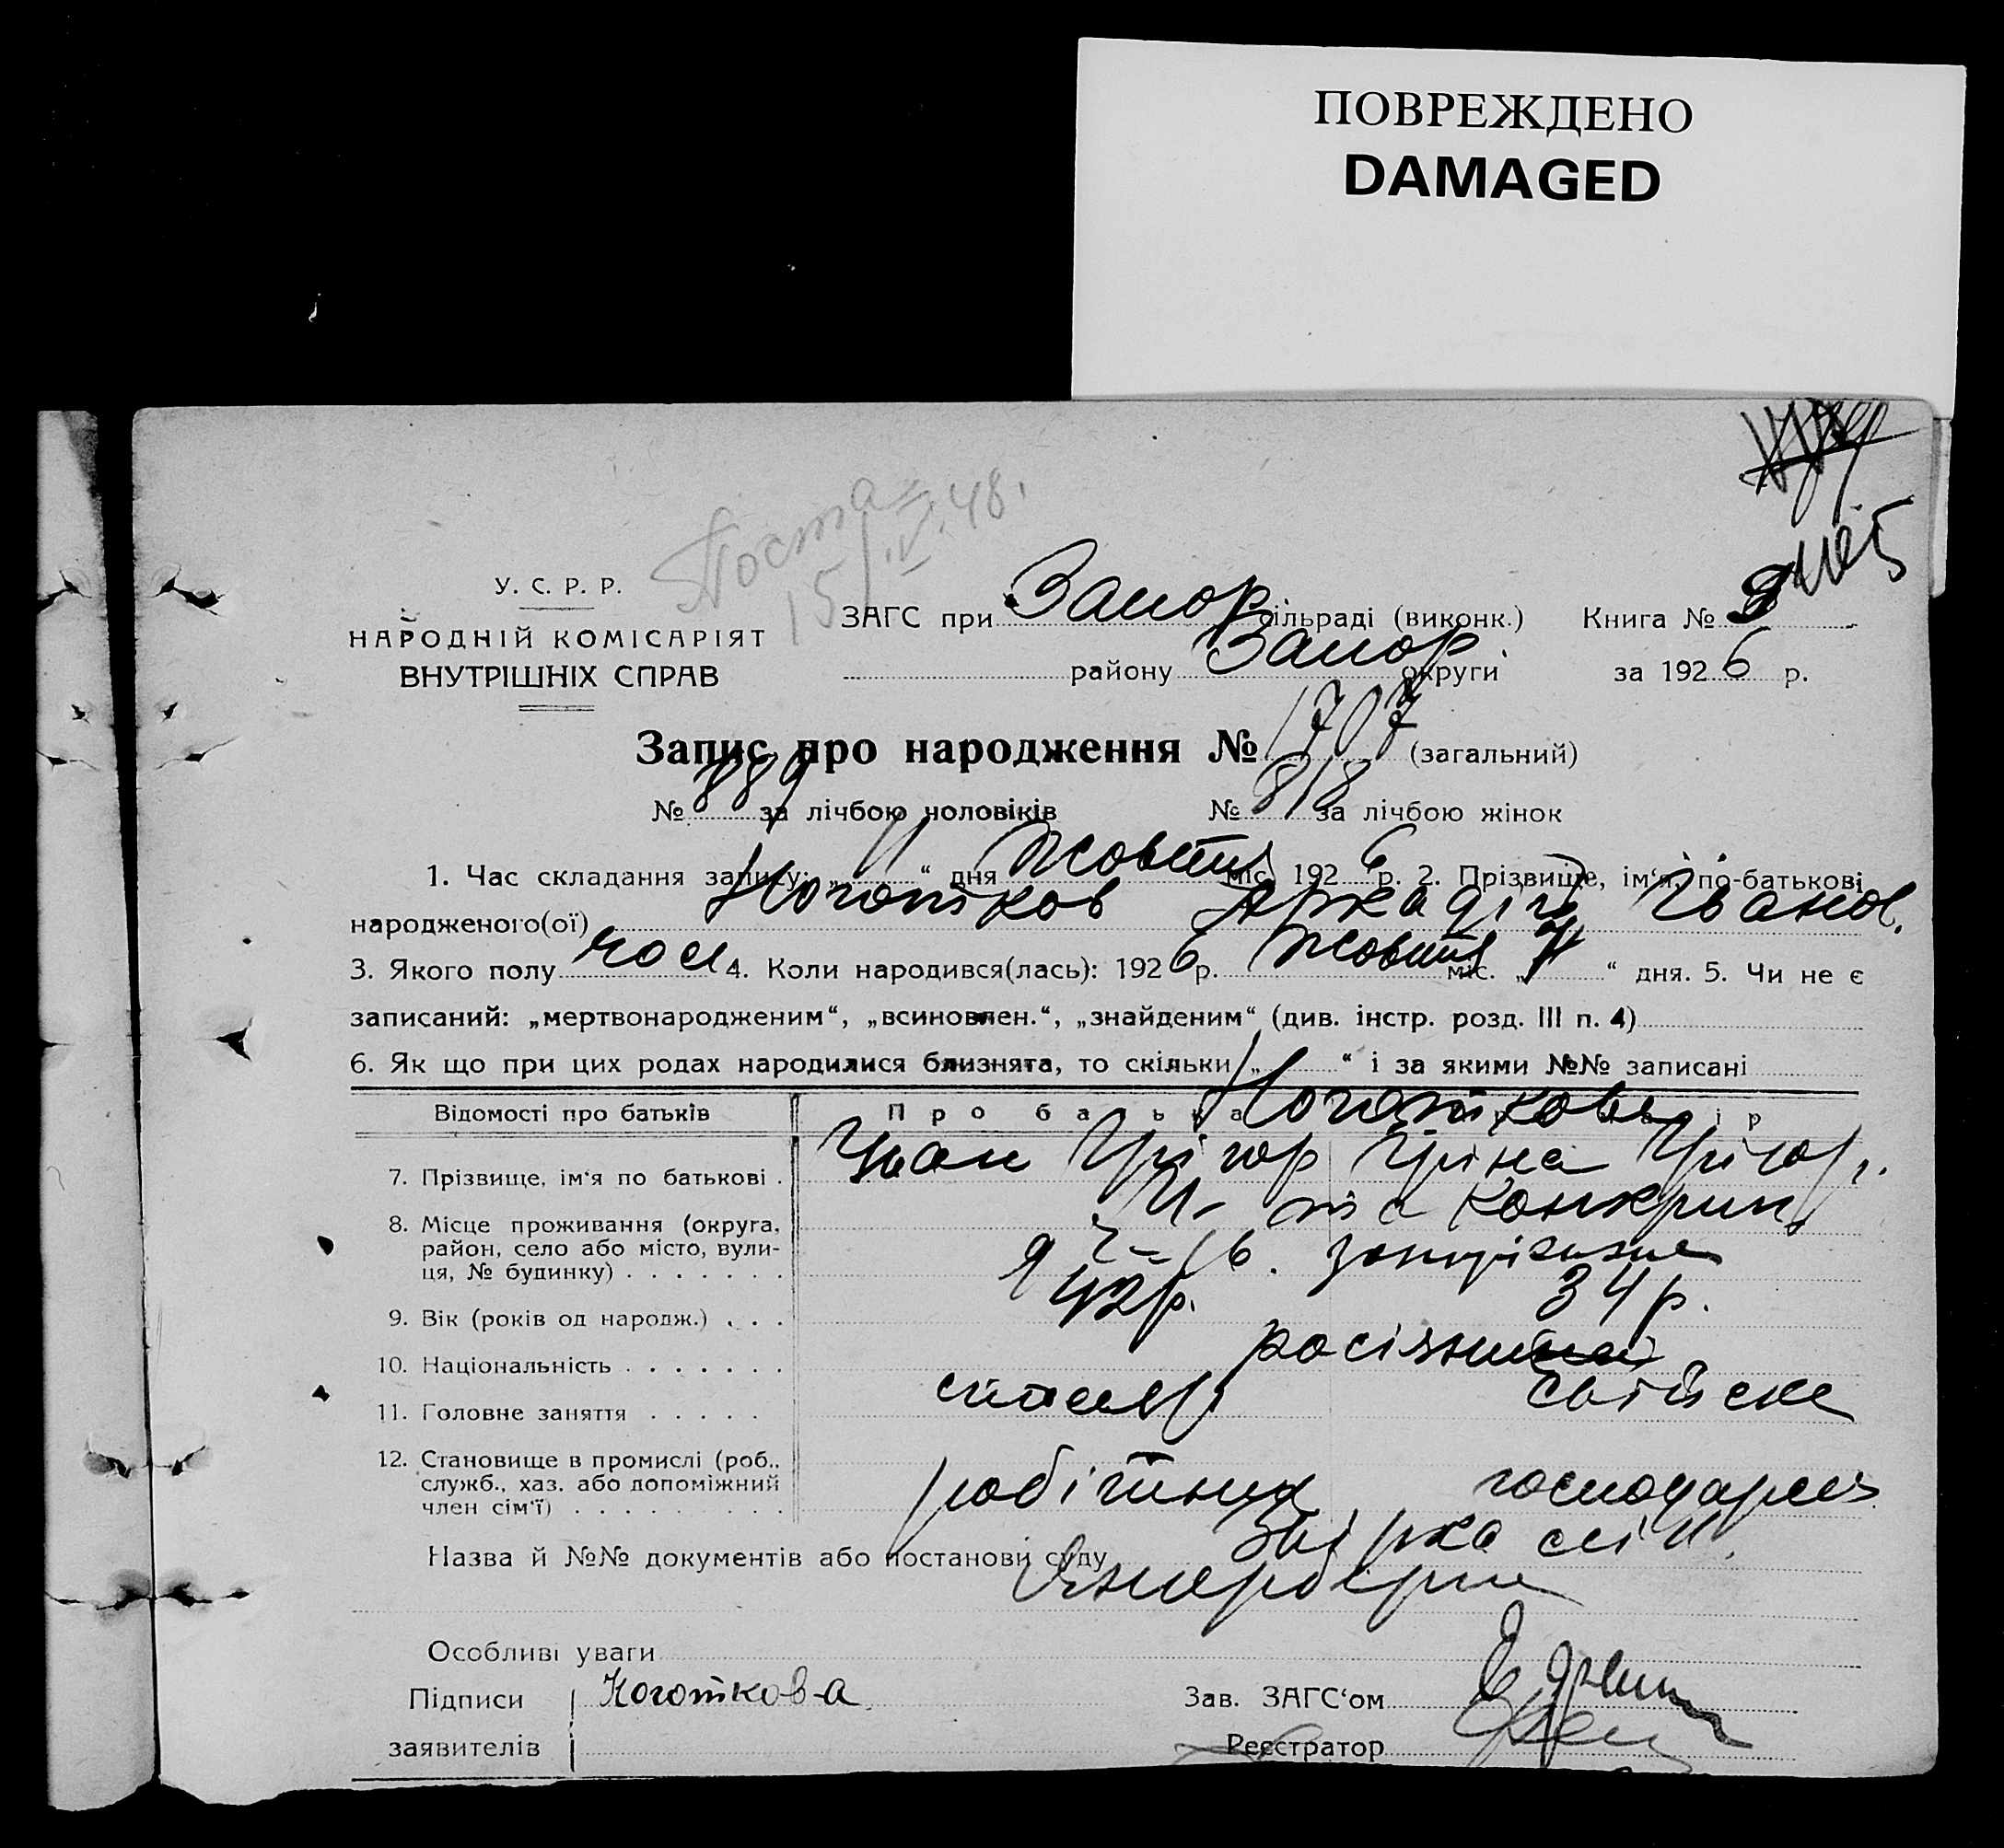 ПОВРЕЖДЕНО
DAMAGED
15/IV.48.
У. С. Р. Р.
НАРОДНІЙ КОМІСАРІЯТ
ВНУТРІШНІХ СПРАВ
ЗАГС при Запор сільраді (виконк.) Книга №
району Запор. округи за 1926 р.
Запис про народження № 1707 (загальний)
№ 889 за лічбою чоловіків № 818 за лічбою жінок
1. Час складання запису: „11“ дня Жовтня міс. 1926 р. 2. Прізвище, ім'я, по-батькові
народженого(ої) Коготков Аркадій Іванов.
3. Якого полу чол 4. Коли народився(лась): 1926 р. Жовтня міс. „ “ дня. 5. Чи не є
записаний: „мертвонародженим“, „всиновлен.“, „знайденим“ (див. інстр. розд. III п. 4)
6. Як що при цих родах народилися близнята, то скільки „ “ і за якими №№ записані
Відомості про батьків Про батька Коготкови
7. Прізвище, ім'я по батькові . Іван Григор Гріна Григор.
8. Місце проживання (округа,
район, село або місто, вули-
ця, № будинку) . . . . . . .
9. Вік (років од народж.) . . . 42 р. 34 р.
10. Національність . . . . . . . росіяни
11. Головне заняття . . . . . столяр свійске
12. Становище в промислі (роб.,
служб., хаз. або допоміжний
член сім'ї) . . . . . . . . . робітник господарка
Назва й №№ документів або постанови суду
Особливі уваги
Підписи Коготкова Зав. ЗАГС'ом
заявителів Реєстратор